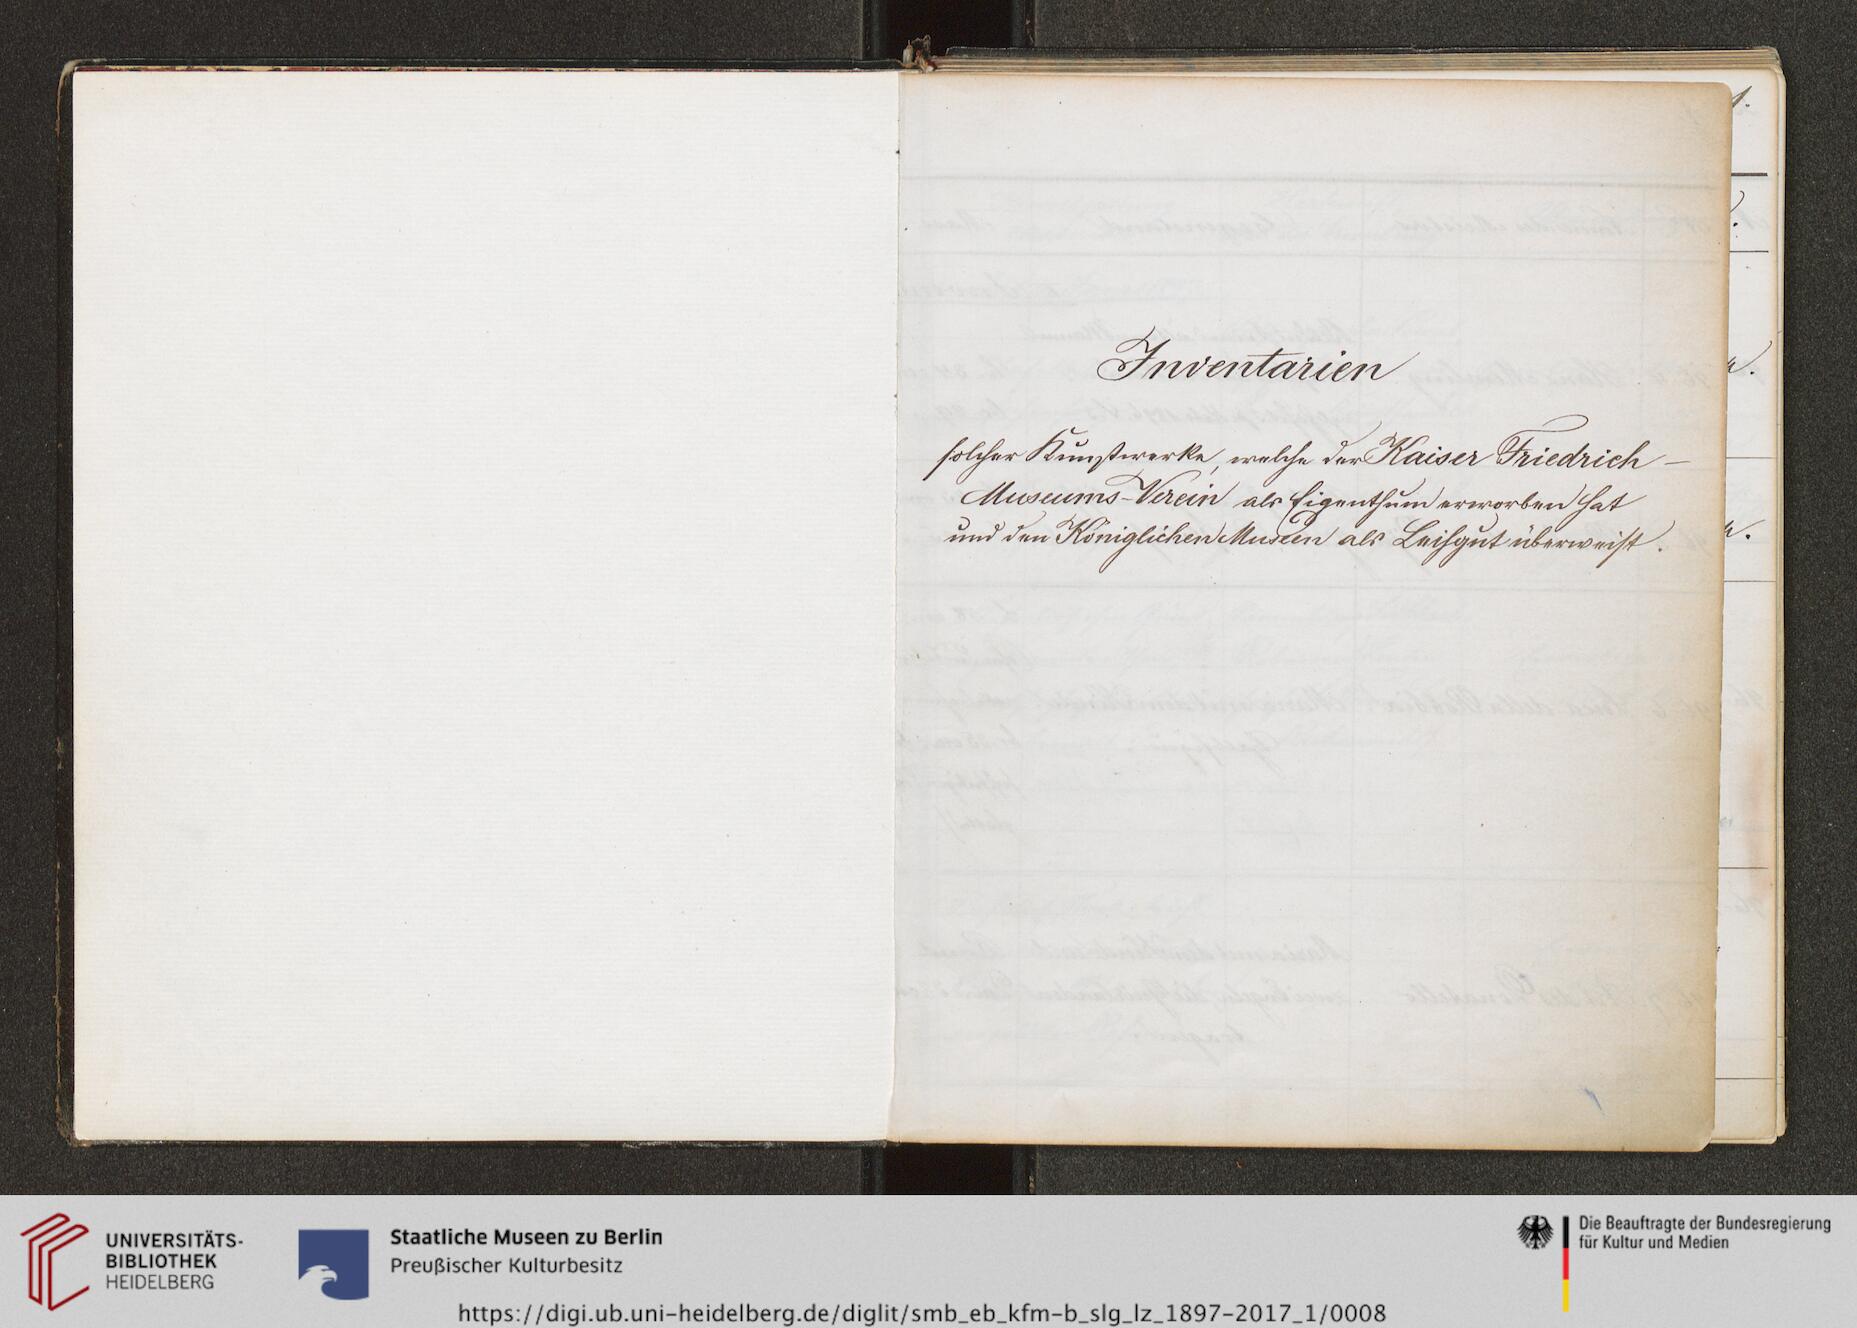 Inventarien
solcher Kunstwerke, welche der Kaiser Friedrich –
Museums-Verein als Eigenthum erworben hat
und den Königlichen Museen als Leihgut überweist.
UNIVERSITÄTS-
BIBLIOTHEK
HEIDELBERG
Staatliche Museen zu Berlin
Preußischer Kulturbesitz
Die Beauftragte der Bundesregierung
für Kultur und Medien
https://digi.ub.uni-heidelberg.de/diglit/smb_eb_kfm-b_slg_lz_1897-2017_1/0008